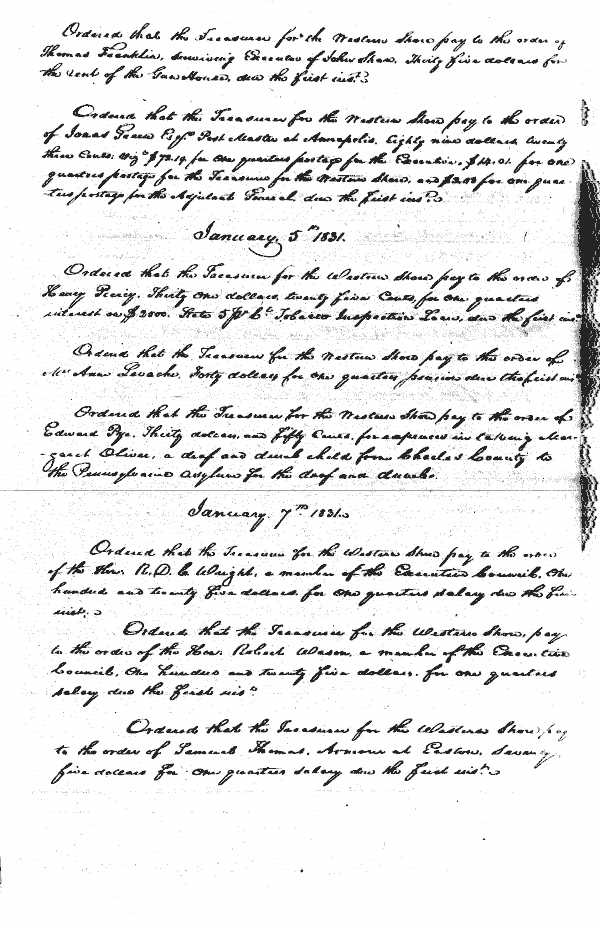 Ordered that the Treasurer for the Western Shore pay to the order of
Thomas Franklin, surviving Executor of John Shaw, Thirty five dollars for
the rent of the Gun House, due the first inst.
Ordered that the Treasurer for the Western Shore pay to the order
of Jonas Green Esqr. Post Master at Annapolis, Eighty nine dollars, twenty
three Cents, Viz. $72.14 for one quarters postage for the Executive, $14.01 for one
quarters postage for the Treasurer for the Western Shore, and for one quar-
ters postage for the Adjutant General due the first inst.
January, 5th 1831.
Ordered that the Treasurer for the Western Shore pay to the order of
Henry Thirty One dollars, twenty five Cents, for one quarters
interest on $2000. State 5 pr Ct. Tobacco Inspection Loan, due the first inst
Ordered that the Treasurer for the Western Shore pay to the order of
Mrs Ann Forty dollars for one quarters pension due the first inst
Ordered that the Treasurer for the Western Shore pay to the order of
Edward Pye, Thirty dollars, and Fifty Cents, for expenses in taking Mar-
garet Oliver, a deaf and dumb child from Charles County to
the Pennsylvania Asylum for the deaf and dumb.
January, 7th 1831.
Ordered that the Treasurer for the Western Shore pay to the order
of the Hon. R. D. C Wright, a member of the Executive Council, One
hundred and twenty five dollars, for one quarters salary due the first
inst.
Ordered that the Treasurer for the Western Shore, pay
to the order of the Hon. Robert Wason, a member of the Executive
Council, One hundred and twenty five dollars, for one quarters
salary due the first inst
Ordered that the Treasurer for the Western Shore pay
to the order of Samuel Thomas, Armourer at Easton, Seventy
five dollars for one quarters salary due the first inst.